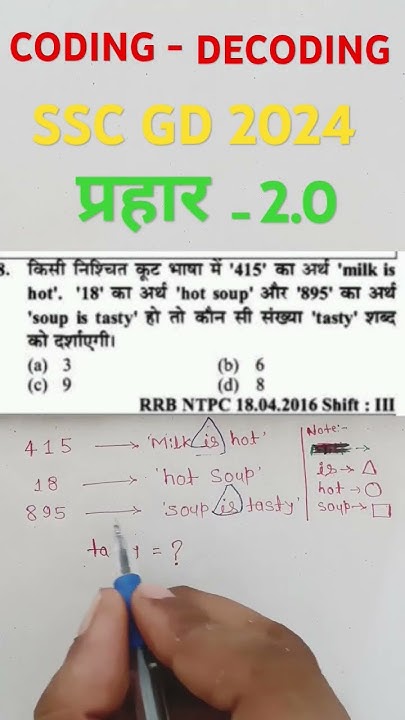 CODING - DECODING
SSC GD 2024
प्रहार - 2.0
8. किसी निश्चित कूट भाषा में '415' का अर्थ 'milk is
hot'. '18' का अर्थ 'hot soup' और '895' का अर्थ
'soup is tasty' हो तो कौन सी संख्या 'tasty' शब्द
को दर्शाएगी।
(a) 3 (b) 6
(c) 9 (d) 8
RRB NTPC 18.04.2016 Shift : III
Note:-
415 → 'Milk is hot'
is → △
18 → 'hot soup'
hot → ○
895 → 'soup is tasty'
soup → □
= ?